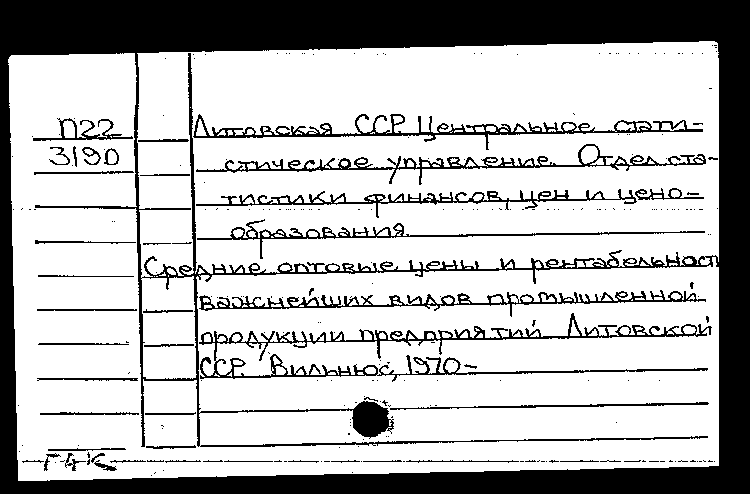 П22
3190
Литовская ССР. Центральное стати-
стическое управление. Отдел ста-
тистики финансов, цен и цено-
образования.
Средние оптовые цены и рентабельность
важнейших видов промышленной
продукции предприятий Литовской
ССР. Вильнюс, 1970-
Г4К